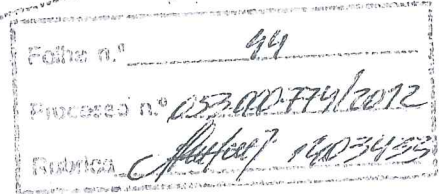 Folha n.º 44
Processo n.º 053.000.774/2012
Rubrica 1403433